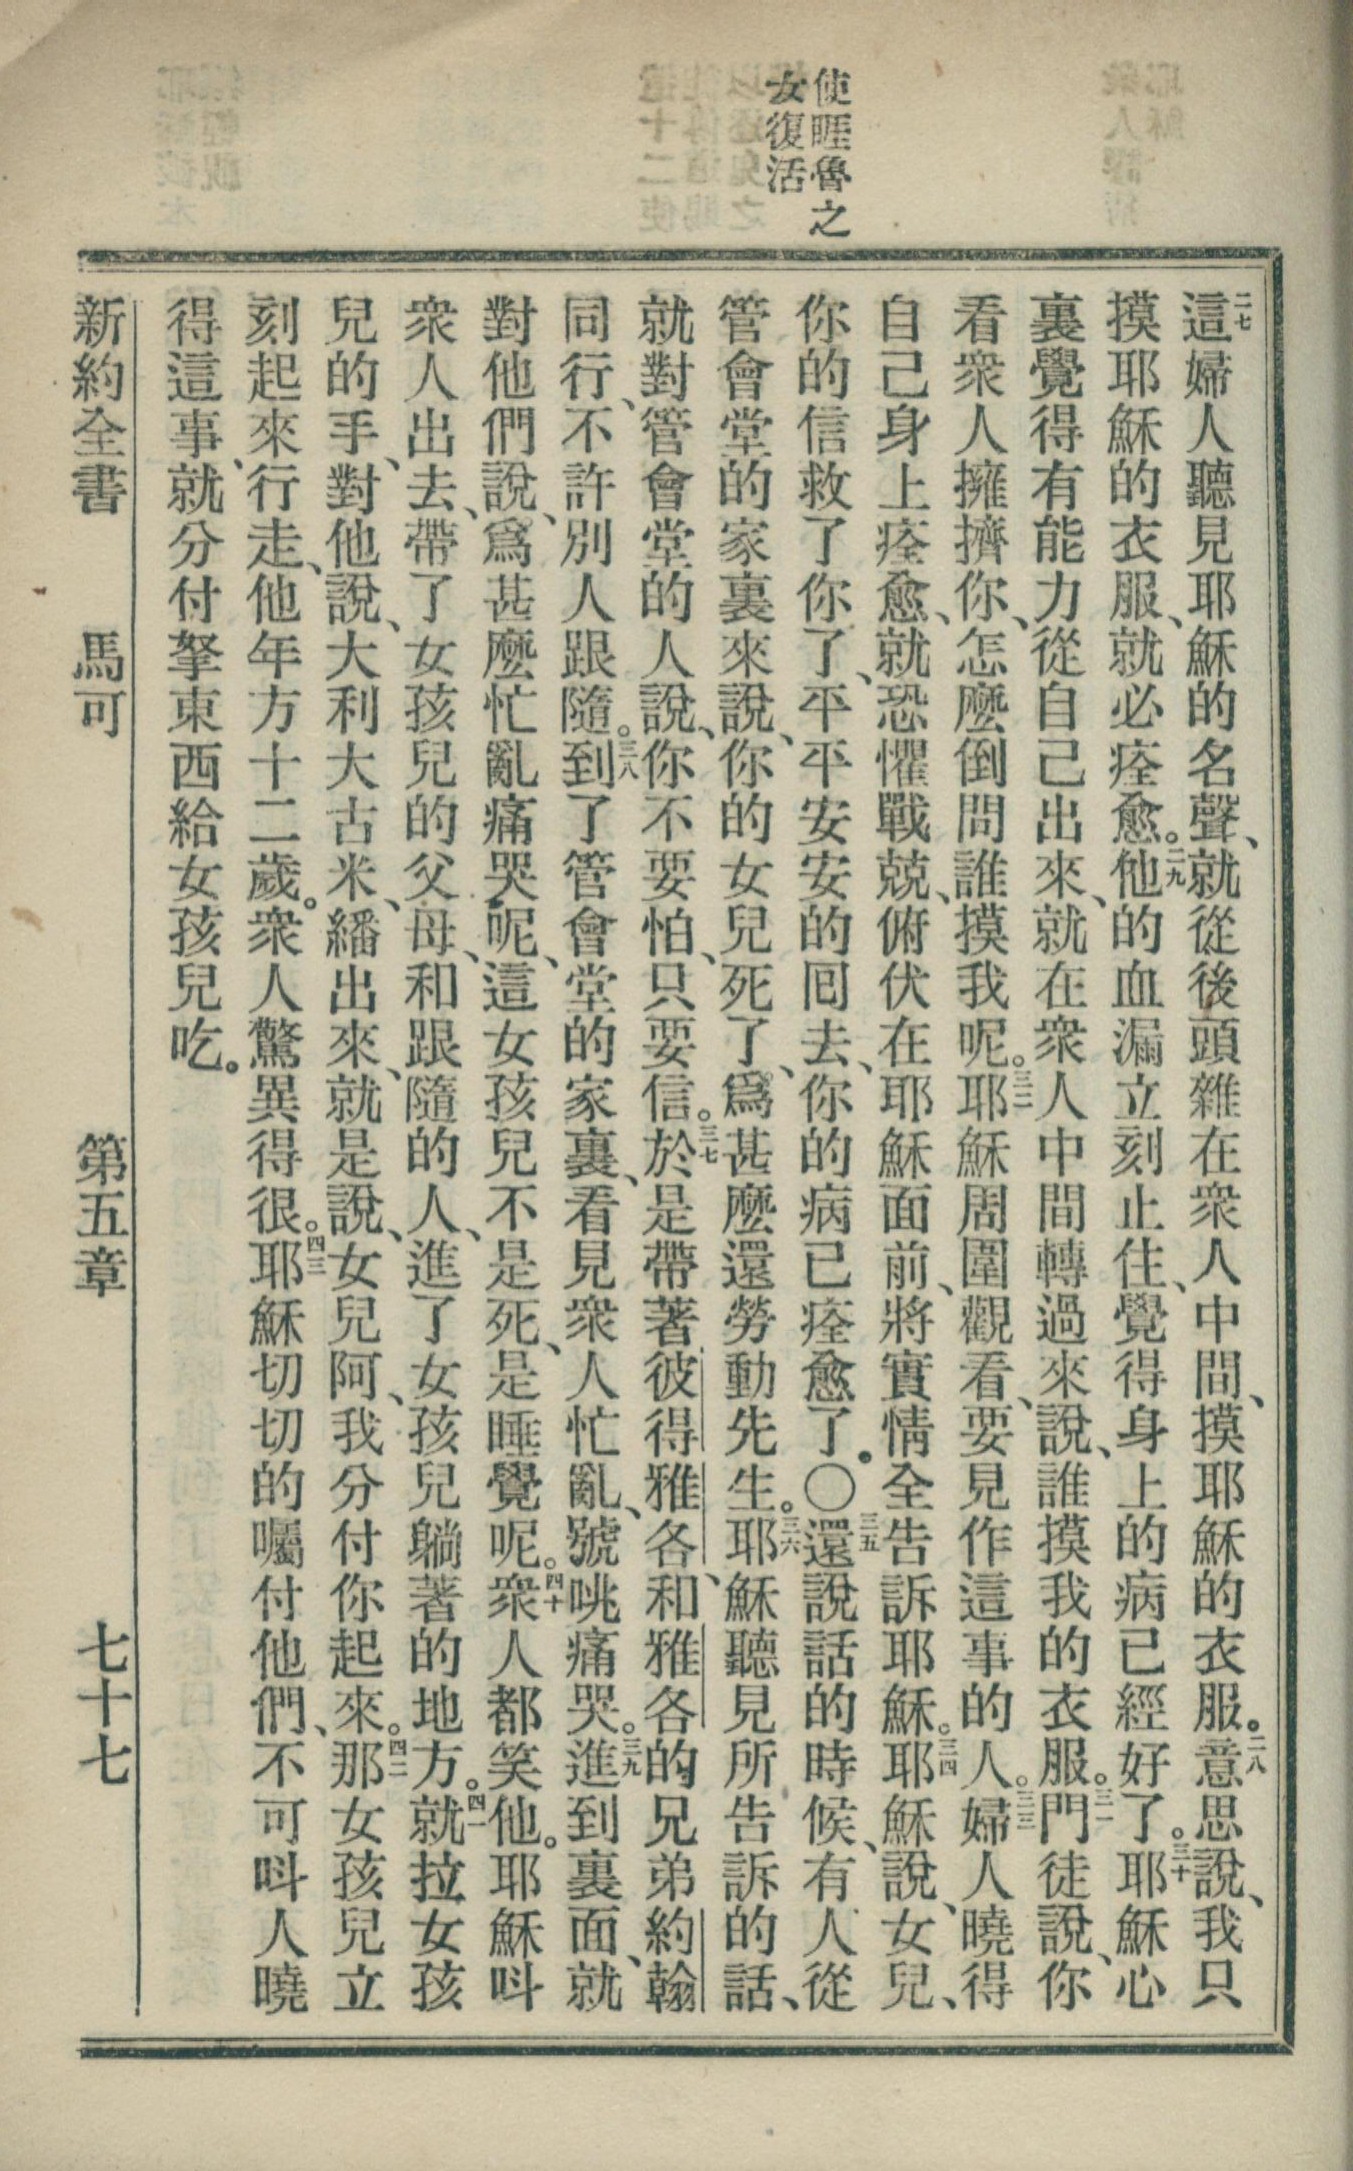 使睚魯之
女復活
二七這婦人聽見耶穌的名聲、就從後頭雜在衆人中間、摸耶穌的衣服。二八意思說、我只
摸耶穌的衣服、就必痊愈。二九他的血漏立刻止住、覺得身上的病已經好了。三十耶穌心
裏覺得有能力從自己出來、就在衆人中間轉過來說、誰摸我的衣服。三一門徒說、你
看衆人擁擠你、怎麼倒問誰摸我呢。三二耶穌周圍觀看、要見作這事的人。三三婦人曉得
自己身上痊愈、就恐懼戰兢、俯伏在耶穌面前、將實情全告訴耶穌。三四耶穌說、女兒、
你的信救了你了、平平安安的囘去、你的病已痊愈了。〇三五還說話的時候、有人從
管會堂的家裏來說、你的女兒死了、爲甚麼還勞動先生。三六耶穌聽見所告訴的話、
就對管會堂的人說、你不要怕、只要信。三七於是帶著彼得雅各、和雅各的兄弟約翰
同行、不許別人跟隨。三八到了管會堂的家裏、看見衆人忙亂、號咷痛哭。三九進到裏面、就
對他們說、爲甚麼忙亂痛哭呢、這女孩兒不是死、是睡覺呢。四十衆人都笑他。耶穌呌
衆人出去、帶了女孩兒的父母、和跟隨的人、進了女孩兒躺著的地方。四一就拉女孩
兒的手、對他說、大利大古米、繙出來、就是說、女兒阿、我分付你起來。四二那女孩兒立
刻起來行走、他年方十二歲。衆人驚異得很。四三耶穌切切的囑付他們、不可呌人曉
得這事、就分付拏東西給女孩兒吃。
新約全書 馬可 第五章 七十七